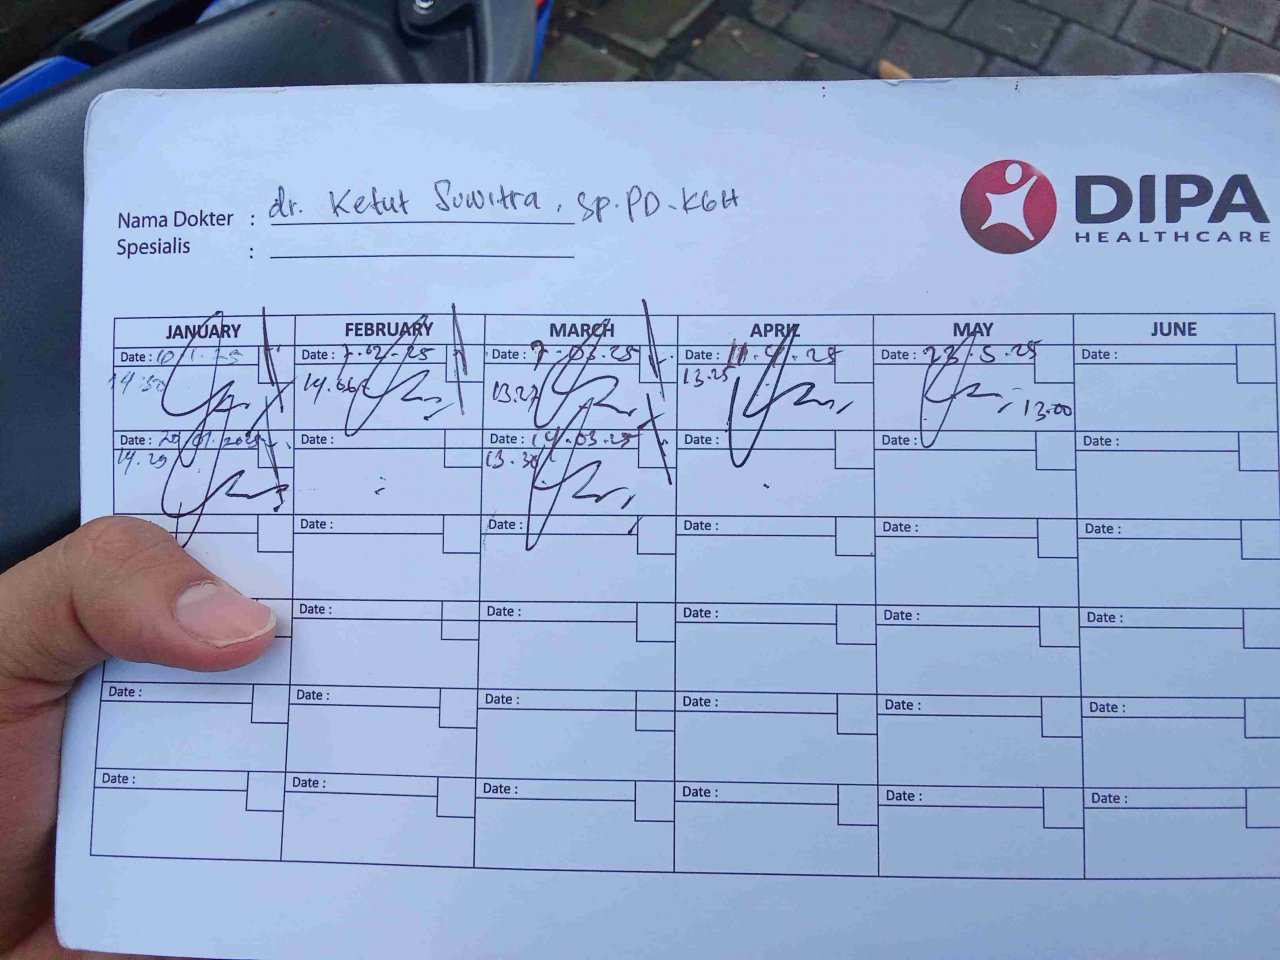 dr. Ketut Suwitra, Sp.PD-KGH
Nama Dokter :
Spesialis :
DIPA
HEALTHCARE
JANUARY FEBRUARY MARCH APRIL MAY JUNE
Date : 10/1.25 Date : 7.02-25 Date : 7-03.25 Date : 11.4.25 Date : 23.5.25 Date :
14.30 13.27 13.25 13.00
Date : Date : Date : 14.03.25 Date : Date : Date :
14.29 13.30
Date : Date : Date : Date : Date :
Date : Date : Date : Date : Date :
Date : Date : Date : Date : Date : Date :
Date : Date : Date : Date : Date : Date :